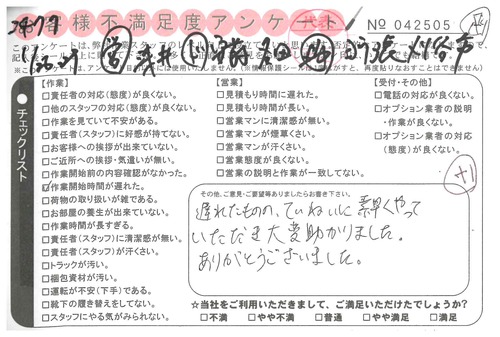 お客様不満足度アンケート
No 042505
チェックリスト
【作業】
□責任者の対応(態度)が良くない。
□他のスタッフの対応(態度)が良くない。
□作業を見ていて不安がある。
□責任者(スタッフ)に好感が持てない。
□お客様への挨拶が出来ていない。
□ご近所への挨拶・気遣いが無い。
□作業開始前の内容確認がなかった。
☑作業開始時間が遅れた。
□荷物の取り扱いが雑である。
□お部屋の養生が出来ていない。
□作業時間が長すぎる。
□責任者(スタッフ)に清潔感が無い。
□責任者(スタッフ)が汗くさい。
□トラックが汚い。
□梱包資材が汚い。
□運転が不安(下手)である。
□靴下の履き替えをしてない。
□スタッフにやる気がみられない。
【営業】
□見積もり時間に遅れた。
□見積もり時間が長い。
□営業マンに清潔感が無い。
□営業マンが煙草くさい。
□営業マンが汗くさい。
□営業態度が良くない。
□営業の説明と作業が一致してない。
【受付・その他】
□電話の対応が良くない。
□オプション業者の説明
・作業が良くない。
□オプション業者の対応
(態度)が良くない。
その他、ご意見・ご要望等ありましたらお書き下さい。
遅れたものの、ていねいに素早くやって
いただき大変助かりました。
ありがとうございました。
☆当社をご利用いただきまして、ご満足いただけたでしょうか?
□不満 □やや不満 □普通 □やや満足 □満足